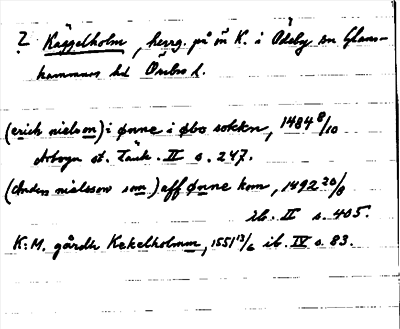 2 Käggelholm, herrg. på ön K. i Ödeby sn Glans-
hammars hd Örebro l.
(erich nielson) i ønne i øbo sokkn, 1484 8/10
Arboga st. Tänk. II s. 247.
(Anders nielsson som) aff ønne kom, 1492 20/8
ib. II s. 405.
K. M. gårdh Kekelholmm, 1551 13/6 ib. IV s. 83.